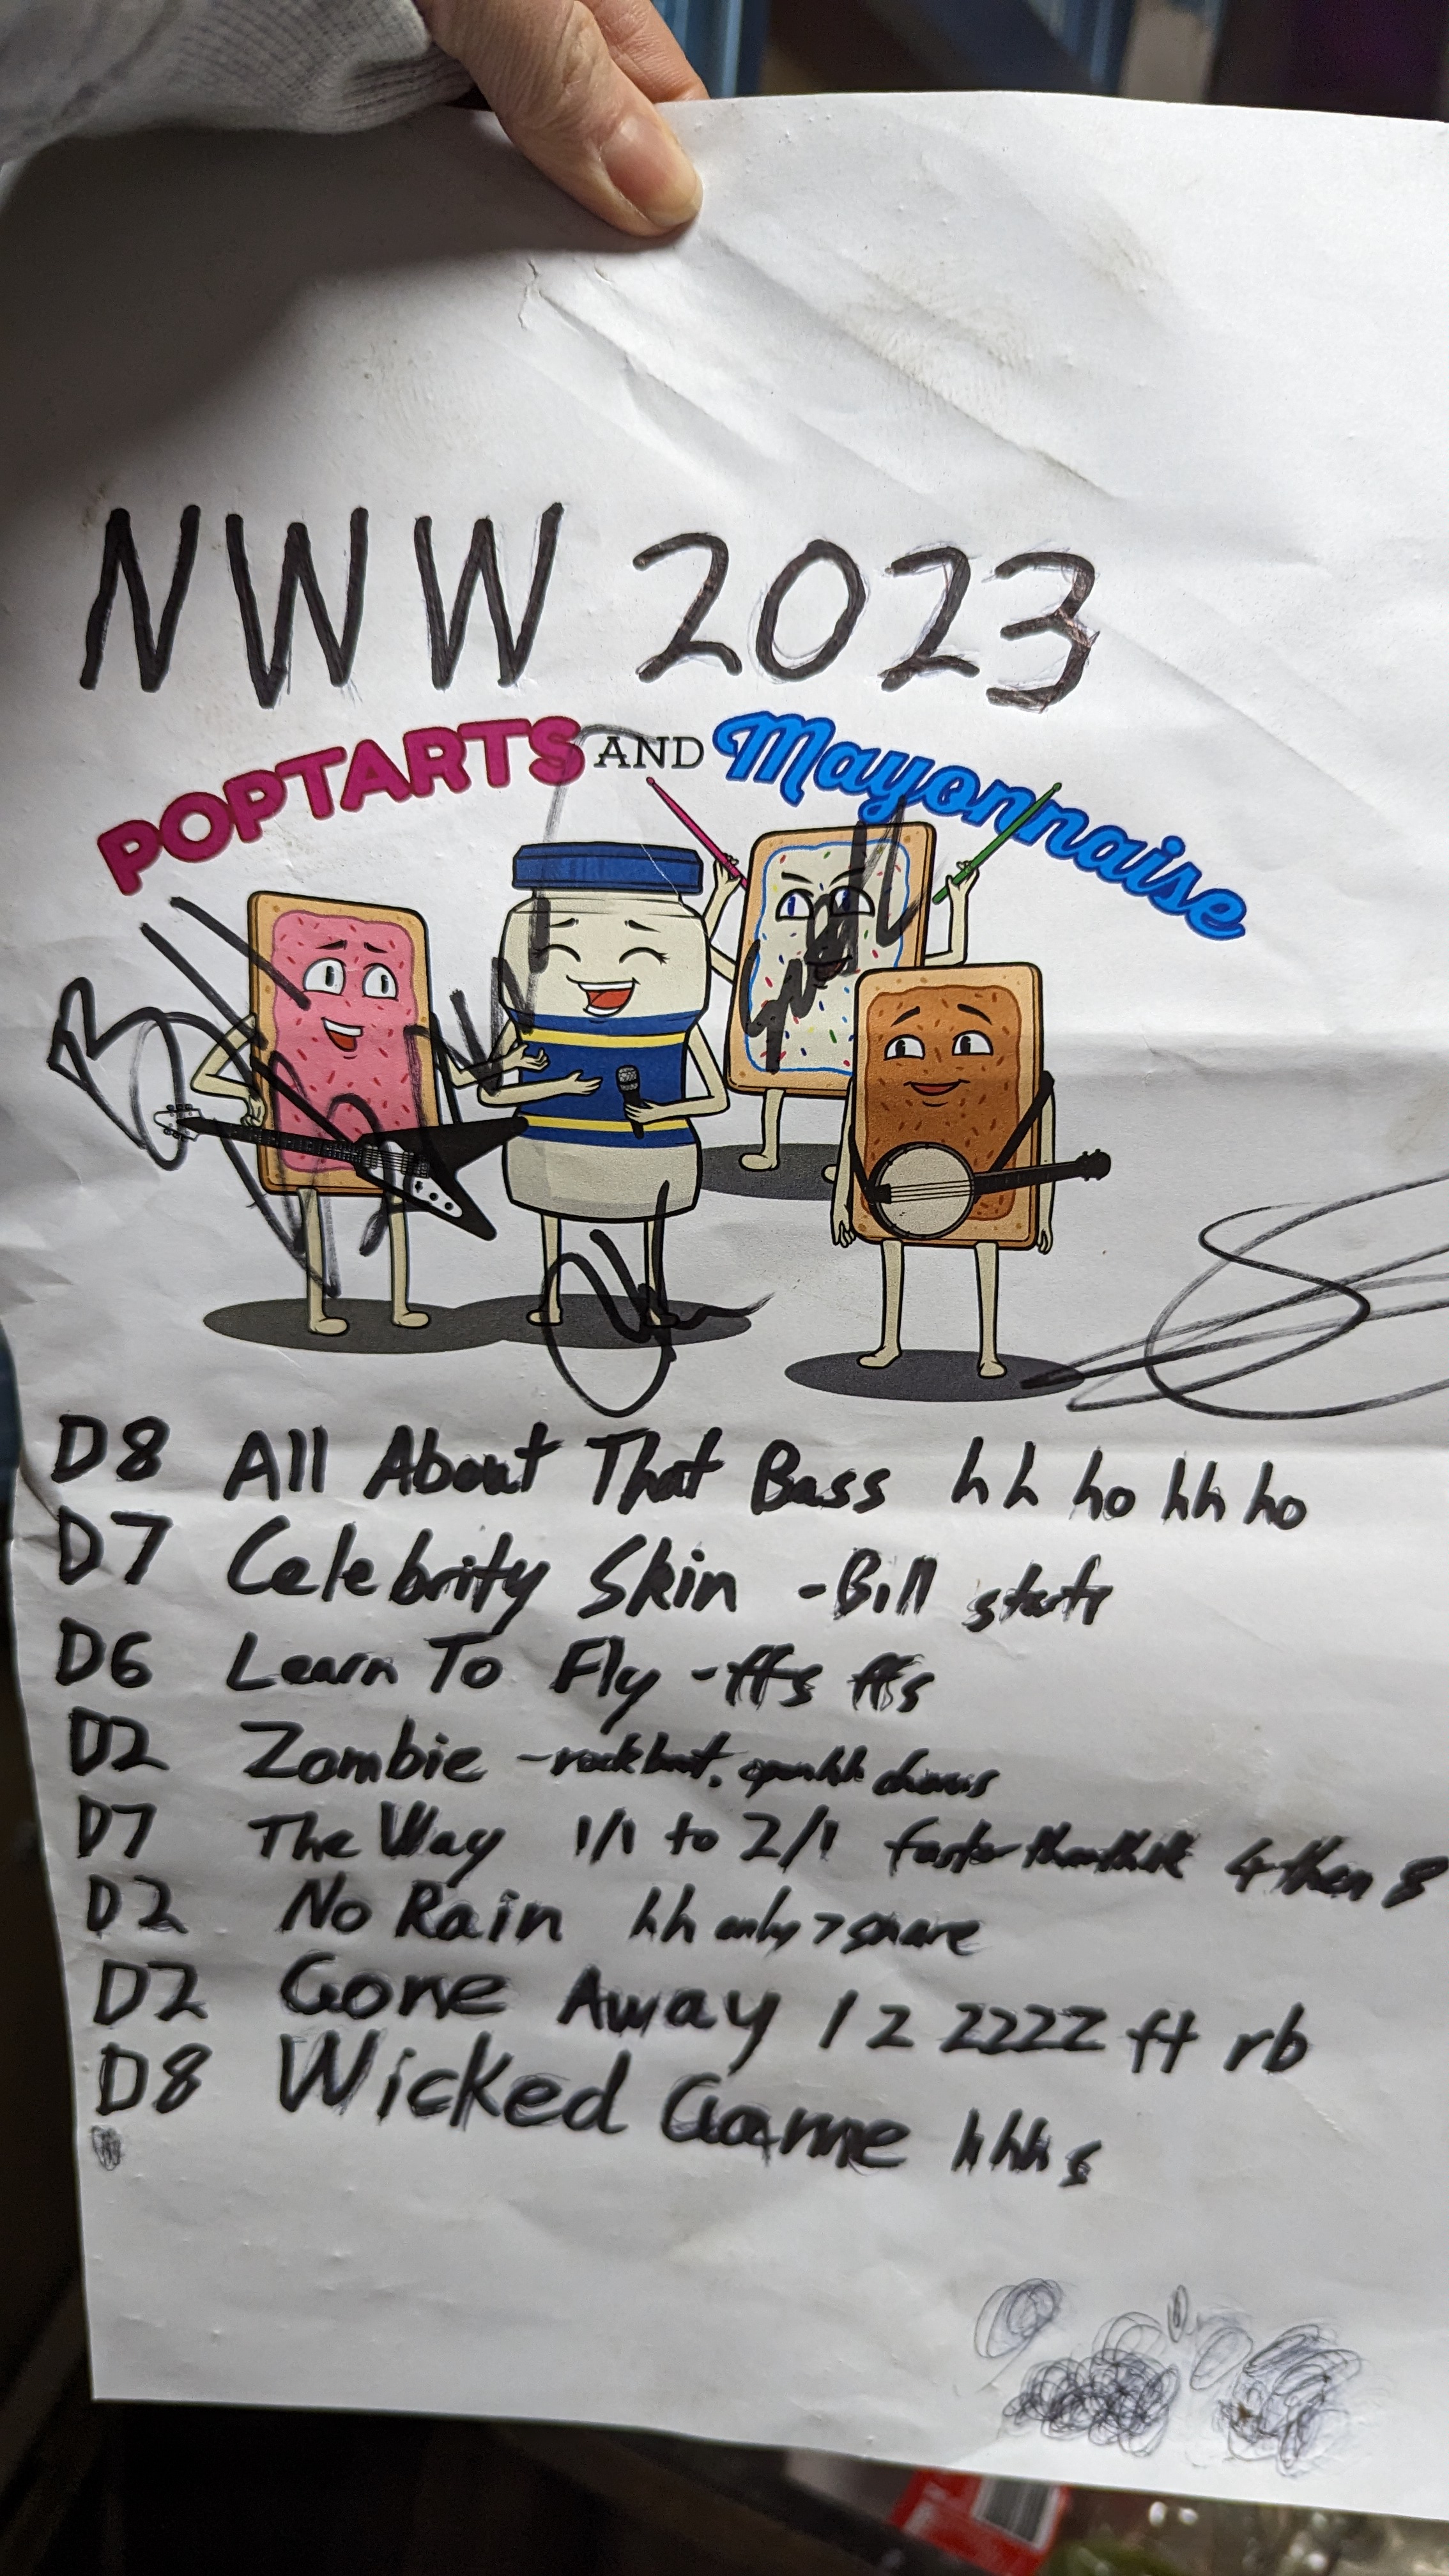 NWW 2023
POPTARTS AND Mayonnaise
D8 All About That Bass hh ho hh ho
D7 Celebrity Skin - Bill starts
D6 Learn To Fly - ffs ffs
D2 Zombie - rock beat, open hh chorus
D7 The Way 1/1 to 2/1 faster than think 4 then 8
D2 No Rain hh only > snare
D2 Gone Away 1 2 2222 ft rb
D8 Wicked Game hhh s